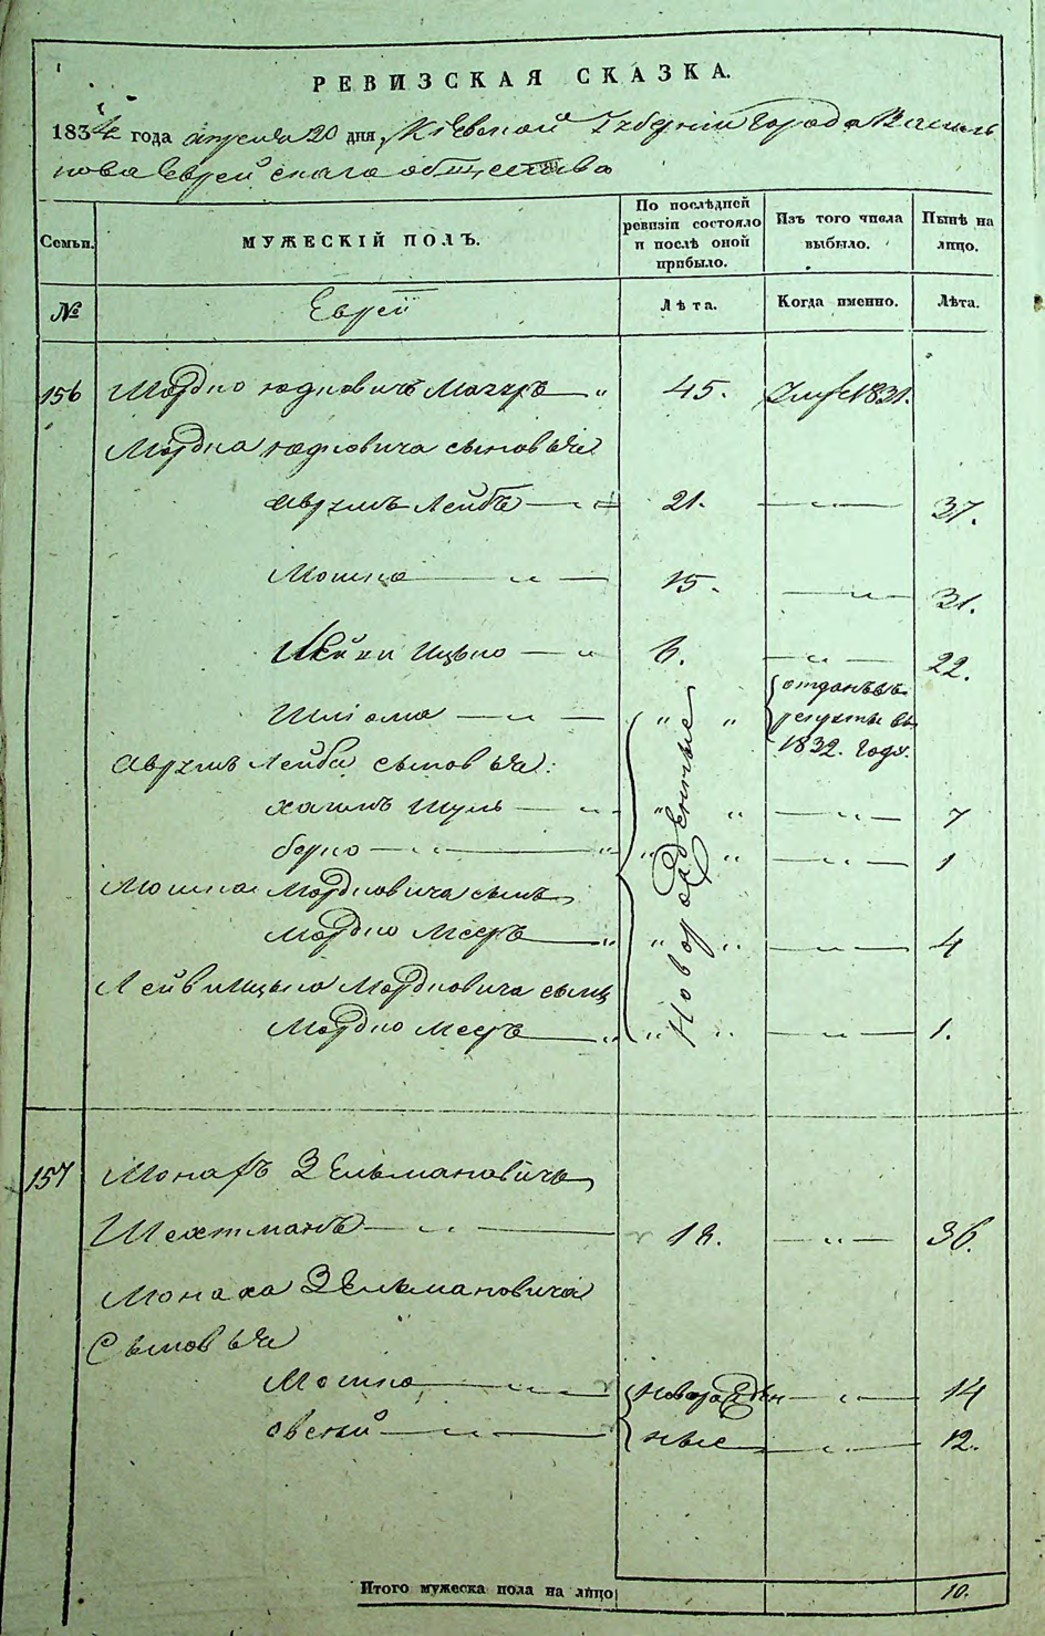 РЕВИЗСКАЯ СКАЗКА.
1834 года апреля 20 дня, Кіевской Губерніи Города Василь
кова Еврейскаго общества
Семьи.
МУЖЕСКІЙ ПОЛЪ.
По послѣдней ревизіи состояло и послѣ оной прибыло.
Изъ того числа выбыло.
Нынѣ на лицо.
№
Евреи
Лѣта.
Когда именно.
Лѣта.
156 Мордко Юдковичъ „ 45. 1831.
Мордка Юдковича сыновья
Аврумъ Лейбъ „ 21. „ 37.
Мошко „ 15. „ 31.
Ицько „ 6. „ 22.
Шліома „ „ „ отданъ въ рекруты въ 1832. годѣ.
Аврумъ Лейба сыновья:
Хаимъ Шуль „ „ „ „ 7
Берко „ „ „ „ 1
Новорожденные
Мошка Мордковича сынъ
Мордко Мееръ „ „ „ „ 4
Лейви Ицька Мордковича сынъ
Мордко Мееръ „ „ „ „ 1.
157 Монахъ Зельмановичъ
Шехтманъ „ „ 36.
Монаха Зельмановича
Сыновья
Мошко „ новорожден „ 14
Овсей „ ные „ 12.
Итого мужеска пола на лицо 10.